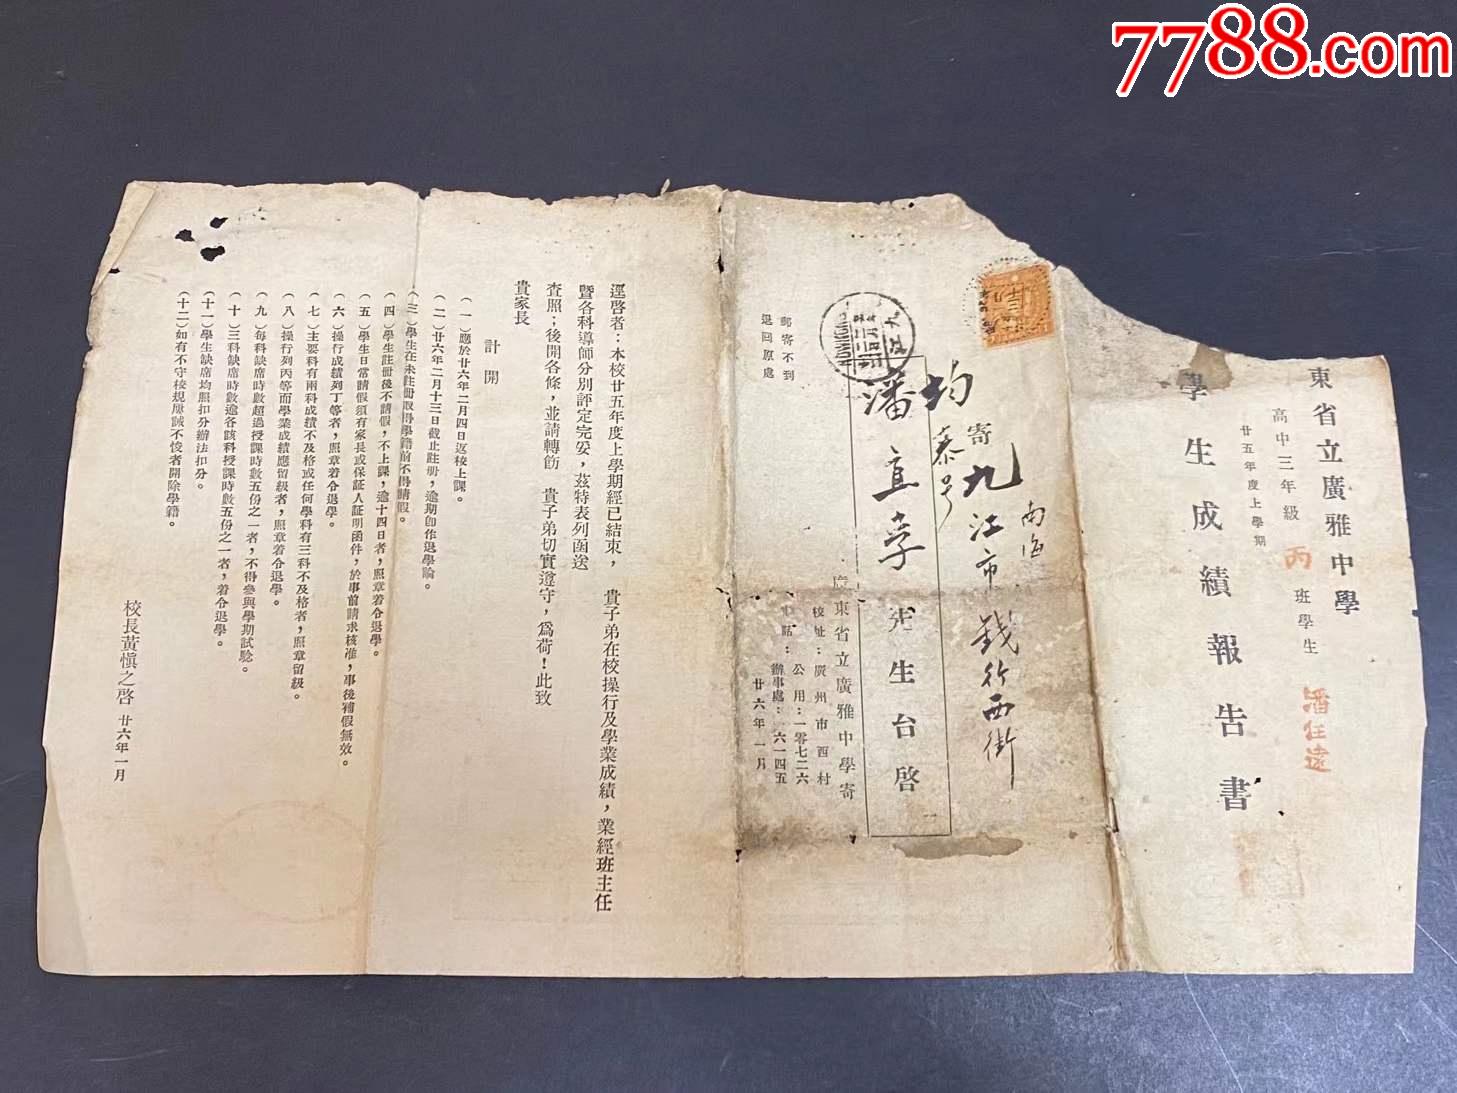 7788.com
東省立廣雅中學
廿五年度上學期
高中三年級 丙 班學生 潘任遠
學生成績報告書
南海
寄九江市錢行西街
均泰号
潘直孪先生台啓
郵寄不到
退回原處
廣東省立廣雅中學寄
校址：廣州市西村
電話：公用：一零七二六
辦事處：六一四五
廿六年一月
逕啓者：本校廿五年度上學期經已結束， 貴子弟在校操行及學業成績，業經班主任
暨各科導師分別評定完妥，茲特表列函送
查照；後開各條，並請轉飭 貴子弟切實遵守，爲荷！此致
貴家長
計開
（一）應於廿六年二月四日返校上課。
（二）廿六年二月十三日截止註册，逾期卽作退學論。
（三）學生在未註册取得學籍前不得請假。
（四）學生註册後不請假，不上課，逾十四日者，照章着令退學。
（五）學生日常請假須有家長或保証人証明函件，於事前請求核准，事後補假無效。
（六）操行成績列丁等者，照章着令退學。
（七）主要科有兩科成績不及格或任何學科有三科不及格者，照章留級。
（八）操行列丙等而學業成績應留級者，照章着令退學。
（九）每科缺席時數超過授課時數五份之一者，不得參與學期試驗。
（十）三科缺席時數逾各該科授課時數五份之一者，着令退學。
（十一）學生缺席均照扣分辦法扣分。
（十二）如有不守校規屢誡不悛者開除學籍。
校長黃慎之啓 廿六年一月